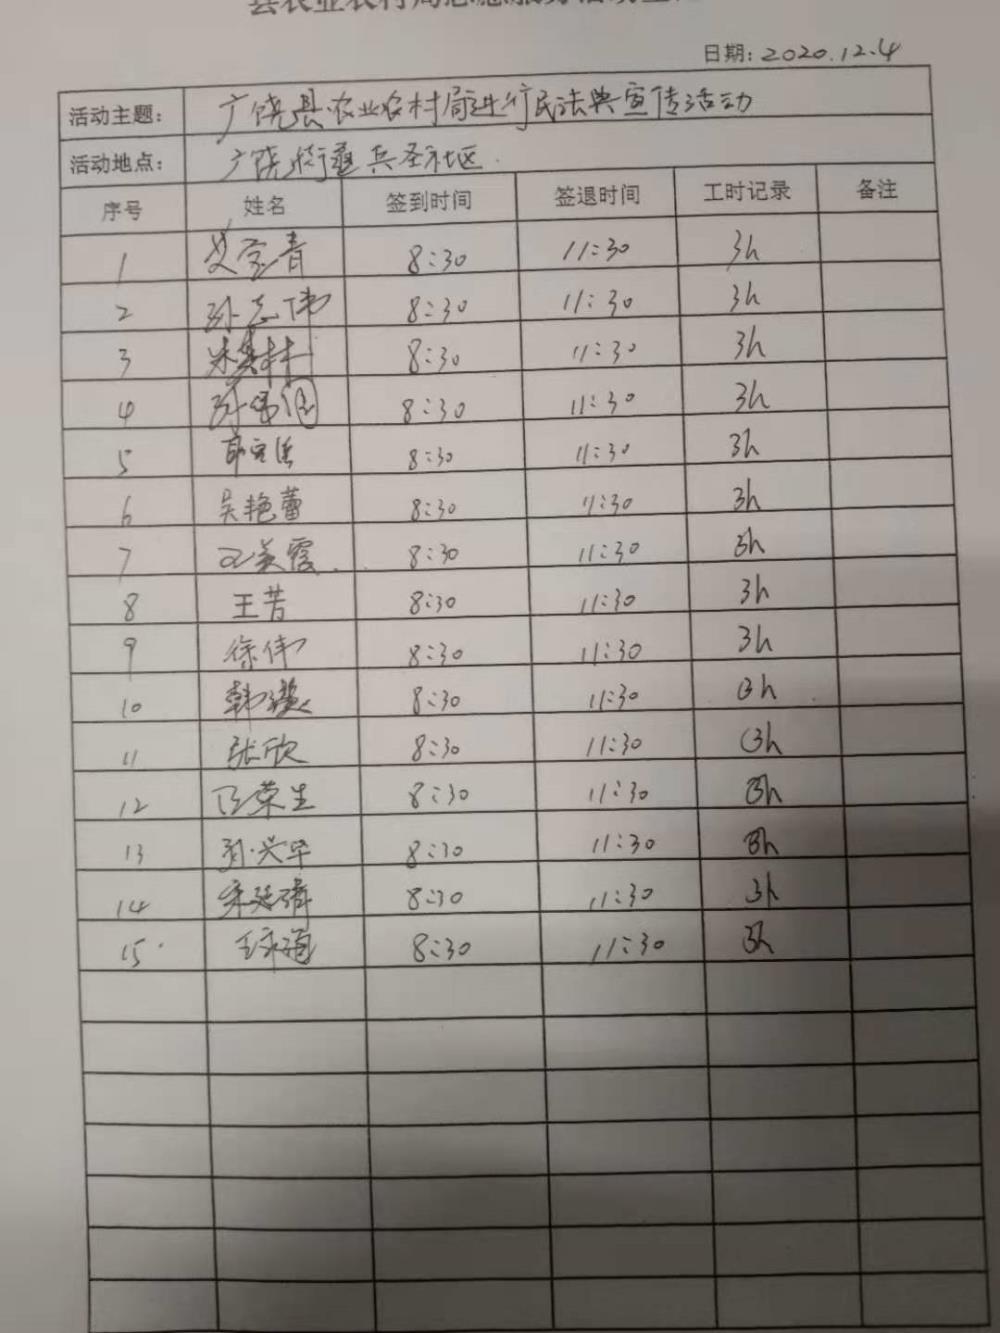 日期：2020.12.4
活动主题： 广饶县农业农村局进行民法典宣传活动
活动地点： 广饶街道兵圣社区
序号 姓名 签到时间 签退时间 工时记录 备注
1 艾宝青 8:30 11:30 3h
2 孙志伟 8:30 11:30 3h
3 8:30 11:30 3h
4 8:30 11:30 3h
5 8:30 11:30 3h
6 吴艳蕾 8:30 11:30 3h
7 王美霞 8:30 11:30 3h
8 王芳 8:30 11:30 3h
9 徐伟 8:30 11:30 3h
10 8:30 11:30 3h
11 张欣 8:30 11:30 3h
12 8:30 11:30 3h
13 孙兴华 8:30 11:30 3h
14 8:30 11:30 3h
15 8:30 11:30 3h